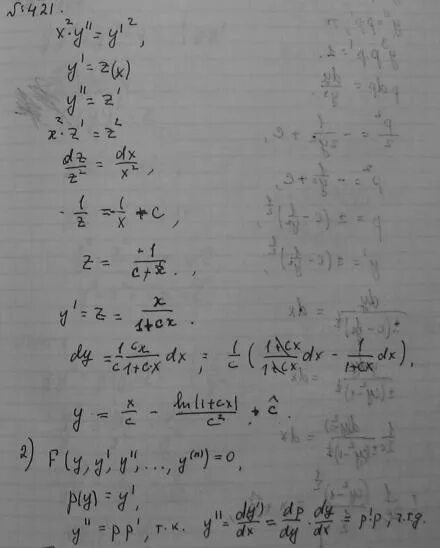 № 421.
x² y'' = y'²,
y' = z(x)
y'' = z'
x² · z' = z²
dz/z² = dx/x²,
- 1/z = - 1/x + C,
z = 1/(C + 1/x),
y' = z = x/(1+Cx).
dy = 1/C · Cx/(1+Cx) dx ; 1/C ( (1+Cx)/(1+Cx) dx - 1/(1+Cx) dx ),
y = x/C - ln|1+Cx|/C² + Ĉ.
2) F(y, y', y'', ..., y⁽ⁿ⁾) = 0,
p(y) = y',
y'' = p p', т.к. y'' = d(y')/dx = dp/dy · dy/dx = p'p, ч.т.д.